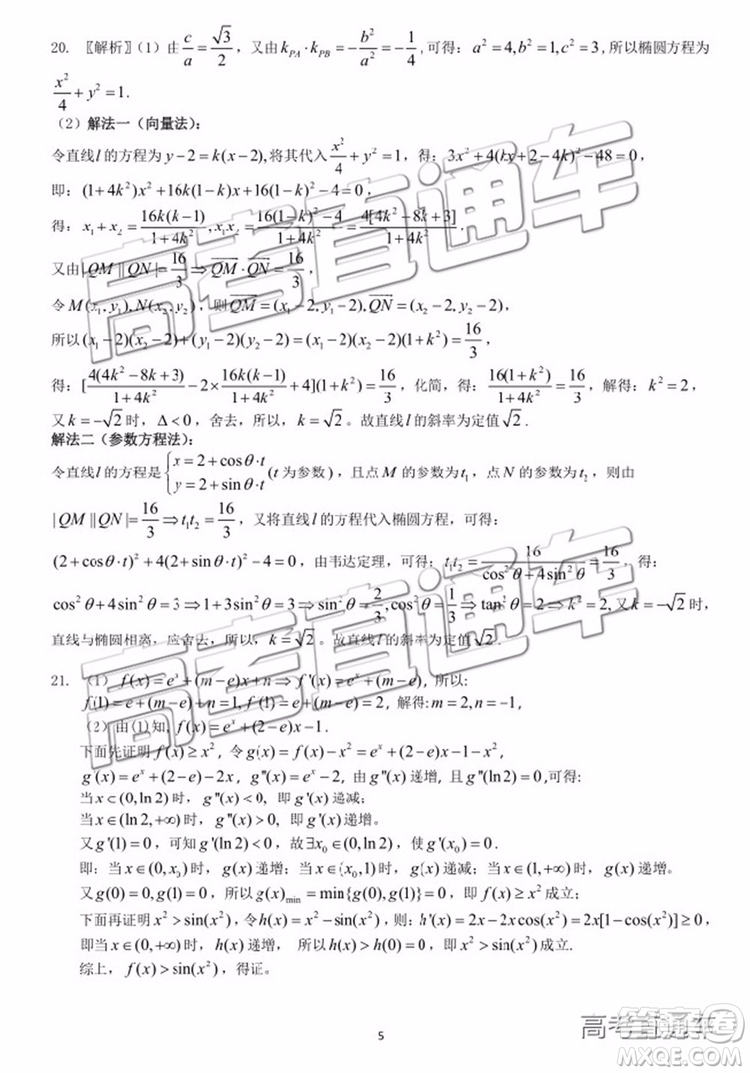 20. 〖解析〗(1) 由 c/a = √3/2，又由 k_PA · k_PB = −b²/a² = −1/4，可得：a² = 4, b² = 1, c² = 3，所以椭圆方程为
x²/4 + y² = 1.
(2) 解法一（向量法）：
令直线 l 的方程为 y − 2 = k(x − 2), 将其代入 x²/4 + y² = 1，得：3x² + 4(kx + 2 − 4k)² − 48 = 0，
即：(1 + 4k²)x² + 16k(1 − k)x + 16(1 − k)² − 4 = 0，
得：x₁ + x₂ = 16k(k−1)/(1+4k²), x₁x₂ = (16(1−k)² − 4)/(1+4k²) = 4[4k² − 8k + 3]/(1+4k²).
又由 |QM||QN| = 16/3 ⇒ QM · QN = 16/3，
令 M(x₁, y₁), N(x₂, y₂)，则 QM = (x₁ − 2, y₁ − 2), QN = (x₂ − 2, y₂ − 2)，
所以 (x₁ − 2)(x₂ − 2) + (y₁ − 2)(y₂ − 2) = (x₁ − 2)(x₂ − 2)(1 + k²) = 16/3，
得：[4(4k² − 8k + 3)/(1+4k²) − 2 × 16k(k−1)/(1+4k²) + 4](1 + k²) = 16/3，化简，得：16(1+k²)/(1+4k²) = 16/3，解得：k² = 2，
又 k = −√2 时，Δ < 0，舍去，所以，k = √2。故直线 l 的斜率为定值 √2 .
解法二（参数方程法）：
令直线 l 的方程是 { x = 2 + cosθ·t y = 2 + sinθ·t (t 为参数)，且点 M 的参数为 t₁，点 N 的参数为 t₂，则由
|QM||QN| = 16/3 ⇒ t₁t₂ = 16/3，又将直线 l 的方程代入椭圆方程，可得：
(2 + cosθ·t)² + 4(2 + sinθ·t)² − 4 = 0，由韦达定理，可得：t₁t₂ = 16/(cos²θ + 4sin²θ) = 16/3. 得：
cos²θ + 4sin²θ = 3 ⇒ 1 + 3sin²θ = 3 ⇒ sin²θ = 2/3, cos²θ = 1/3 ⇒ tan²θ = 2 ⇒ k² = 2, 又 k = −√2 时，
直线与椭圆相离，应舍去，所以，k = √2。故直线 l 的斜率为定值 √2 .
21. (1) f(x) = eˣ + (m − e)x + n ⇒ f'(x) = eˣ + (m − e)，所以:
f(1) = e + (m − e) + n = 1, f'(1) = e + (m − e) = 2，解得: m = 2, n = −1，
(2) 由(1)知, f(x) = eˣ + (2 − e)x − 1.
下面先证明 f(x) ≥ x²，令 g(x) = f(x) − x² = eˣ − x² + (2 − e)x − 1.
g'(x) = eˣ + (2 − e) − 2x，g''(x) = eˣ − 2，由 g''(x) 递增，且 g''(x) = 0,可得:
当 x ∈ (0, ln 2) 时，g''(x) < 0, 即 g'(x) 递减;
当 x ∈ (ln 2, +∞) 时，g''(x) > 0, 即 g'(x) 递增。
又 g'(1) = 0, g'(0) > 0, 故 ∃x₀ ∈ (0, ln 2)，使 g'(x₀) = 0，
即：当 x ∈ (0, x₀) 时，g(x) 递增；当 x ∈ (x₀, 1) 时，g(x) 递减；当 x ∈ (1, +∞) 时，g(x) 递增。
又 g(0) = 0, g(1) = 0，所以 g(x)min = min{g(0), g(1)} = 0，即 f(x) ≥ x² 成立；
下面再证明 x² > sin(x²)，令 h(x) = x² − sin(x²)，则: h'(x) = 2x − 2x cos(x²) = 2x[1 − cos(x²)] ≥ 0，
即当 x ∈ (0, +∞) 时，h(x) 递增， 所以 h(x) > h(0) = 0，即 x² > sin(x²) 成立.
综上，f(x) > sin(x²)，得证。
5
高考直通车
答案圈
MXQE.COM